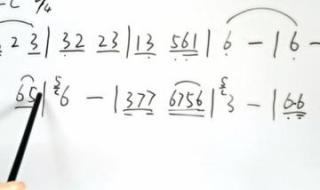 2 3 | 32 23 | 13 561 | 6 - | 6 -
65 | 5 6 - | 377 6756 | 5 3 - | 66